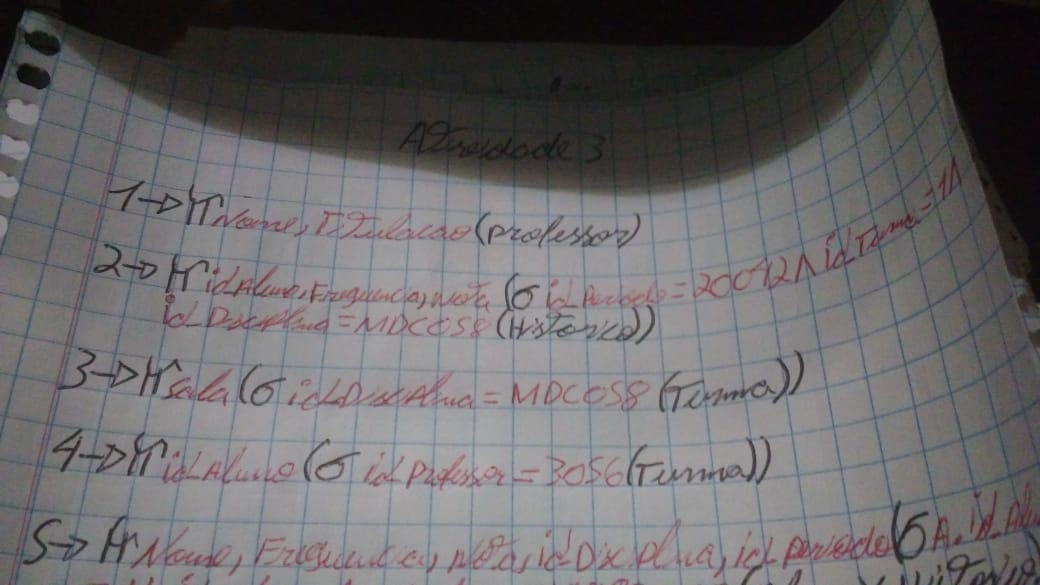 Atividade 3
1→ π Nome, Titulacao (professor)
2→ π idAluno, Frequencia, nota (σ id_Periodo = 20092 Λ idTurma = 1 Λ
id_Disciplina = MDC058 (Historico))
3→ π sala (σ idDisciplina = MDC058 (Turma))
4→ π idAluno (σ idProfessor = 3056 (Turma))
5→ π Nome, Frequencia, nota, idDisciplina, idperiodo (σ A.id_Alu